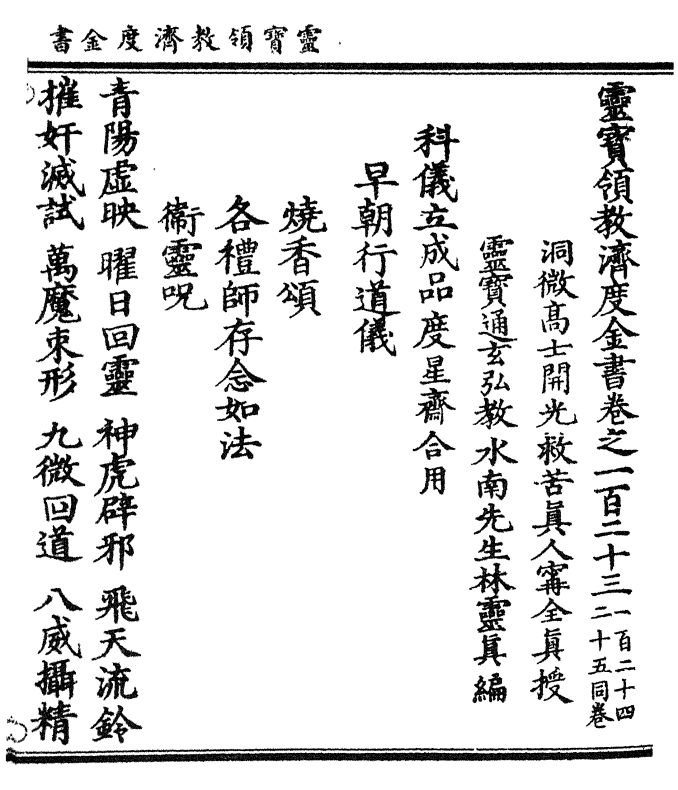 靈寶領教濟度金書
靈寶領教濟度金書卷之一百二十三一百二十四二十五同卷
洞微高士開光救苦眞人寗全眞授
靈寶通玄弘教水南先生林靈眞編
科儀立成品度星齋合用
早朝行道儀
燒香頌
各禮師存念如法
衞靈呪
青陽虛映 曜日回靈 神虎辟邪 飛天流鈴
摧奸滅試 萬魔束形 九微回道 八威攝精